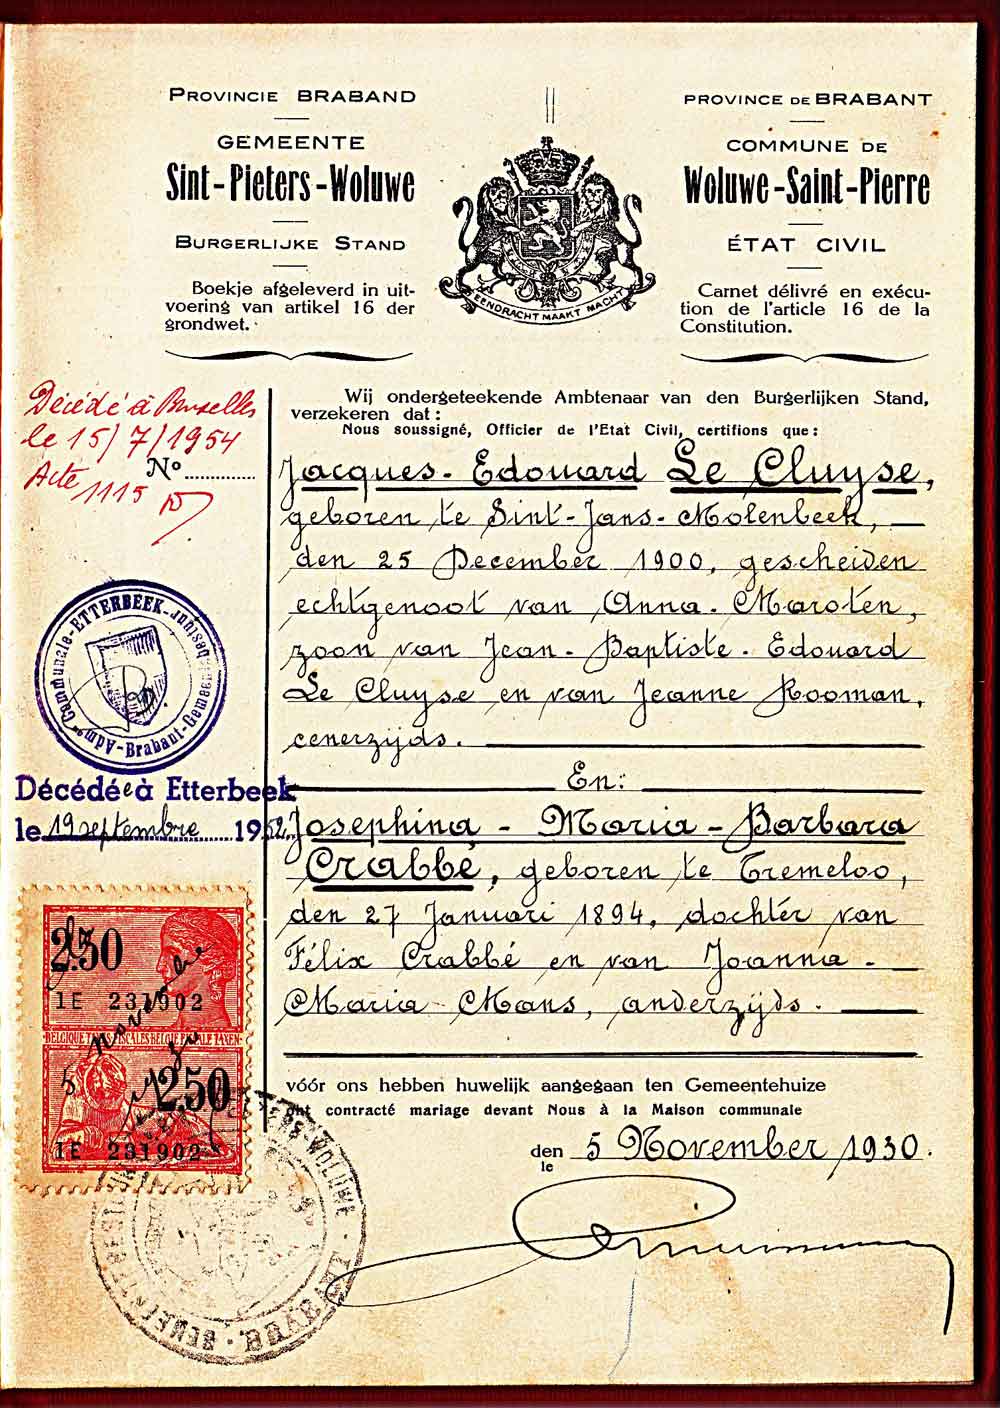 PROVINCIE BRABAND
GEMEENTE
Sint-Pieters-Woluwe
BURGERLIJKE STAND
Boekje afgeleverd in uit-
voering van artikel 16 der
grondwet.
EENDRACHT MAAKT MACHT
PROVINCE DE BRABANT
COMMUNE DE
Woluwe-Saint-Pierre
ÉTAT CIVIL
Carnet délivré en exécu-
tion de l'article 16 de la
Constitution.
Décédé à Bruxelles
le 15/7/1954
Acte 1115
No
Wij ondergeteekende Ambtenaar van den Burgerlijken Stand,
verzekeren dat :
Nous soussigné, Officier de l'Etat Civil, certifions que :
Jacques-Edouard Le Cluyse,
geboren te Sint-Jans-Molenbeek,
den 25 December 1900, gescheiden
echtgenoot van Anna-Maroten,
zoon van Jean-Baptiste-Edouard
Le Cluyse en van Jeanne Rooman,
eenerzijds.
En:
Josephina-Maria-Barbara
Crabbé, geboren te Tremeloo,
den 27 Januari 1894, dochter van
Félix Crabbé en van Joanna-
Maria-Mans, anderzijds.
vóór ons hebben huwelijk aangegaan ten Gemeentehuize
ont contracté mariage devant Nous à la Maison communale
den 5 November 1930.
le
Adm. Communale-ETTERBEEK-Gemeentebestuur
-Brabant-
Décédée à Etterbeek
le 19 septembre 1952.
2.50
1E 231902
BELGIQUE TAXES FISCALES BELGIE FISCALE TAXEN
5 november
2.50
1E 231902
BRAB.